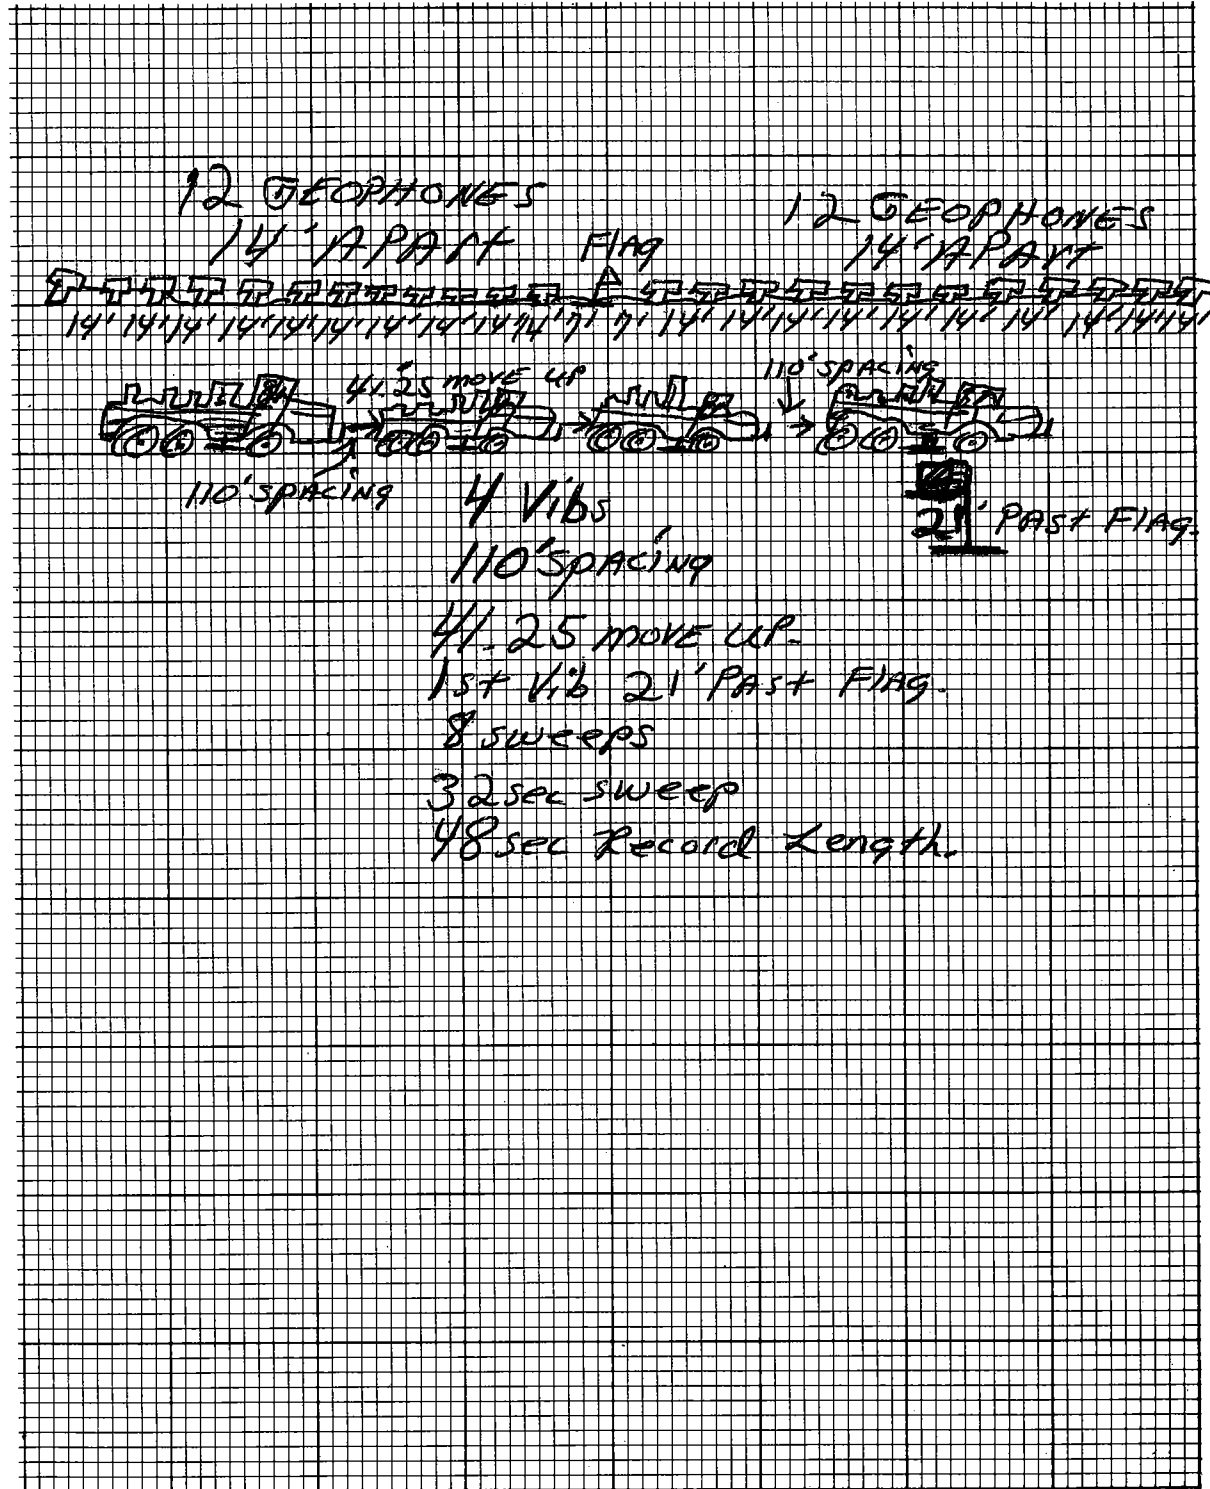 12 GEOPHONES
14' APArt
Flag
12 GEOPHONES
14' APArt
14' 14' 14' 14' 14' 14' 14' 14' 14' 14' 7' 7' 14' 14' 14' 14' 14' 14' 14' 14' 14' 14'
41.25 move up
110' spacing
110' spacing
21' PAst FlAg.
4 Vibs
110' spacing
41.25 move up.
1st Vib 21' PAst FlAg.
8 sweeps
32 sec sweep
48 sec Record Length.